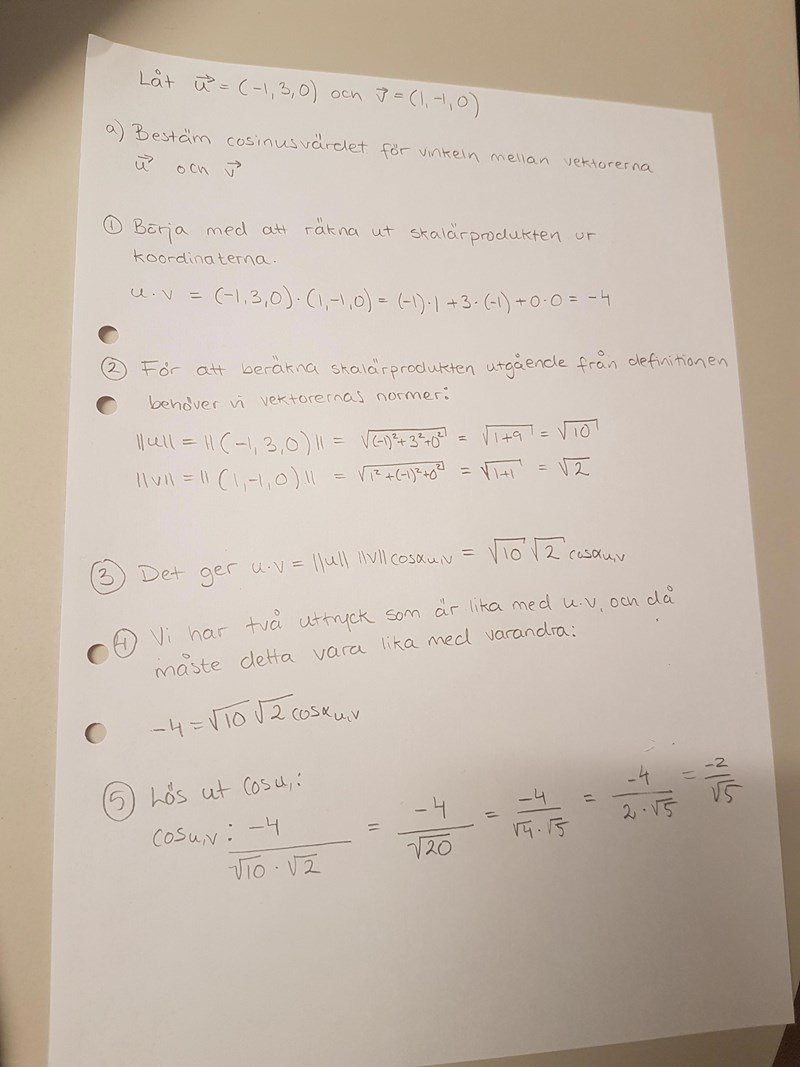 Låt u⃗ = (-1, 3, 0) och v⃗ = (1, -1, 0)
a) Bestäm cosinusvärdet för vinkeln mellan vektorerna
u⃗ och v⃗
① Börja med att räkna ut skalärprodukten ur
koordinaterna.
u·v = (-1,3,0)·(1,-1,0) = (-1)·1 + 3·(-1) + 0·0 = -4
② För att beräkna skalärprodukten utgående från definitionen
behöver vi vektorernas normer:
||u|| = ||(-1, 3, 0)|| = √((-1)²+3²+0²) = √(1+9) = √10
||v|| = ||(1,-1,0)|| = √(1²+(-1)²+0²) = √(1+1) = √2
③ Det ger u·v = ||u|| ||v|| cosα u,v = √10 √2 cosα u,v
④ Vi har två uttryck som är lika med u·v, och då
måste detta vara lika med varandra:
-4 = √10 √2 cosα u,v
⑤ Lös ut cos u,:
cos u,v : -4/(√10 · √2) = -4/√20 = -4/(√4·√5) = -4/(2·√5) = -2/√5